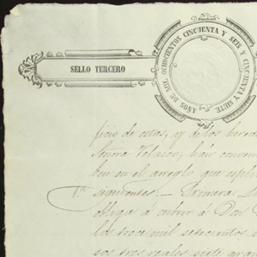 SELLO TERCERO
AÑOS DE MIL OCHOCIENTOS CINCUENTA Y SEIS Y CINCUENTA Y SIETE.
picio de estas, y de los hered
Señora Velasco, han conven
ben en el arreglo que esplic
1ª siguientes. - Primera. D
obliga a cubrir á Don
los trece mil setecientos
sos tres reales siete gran